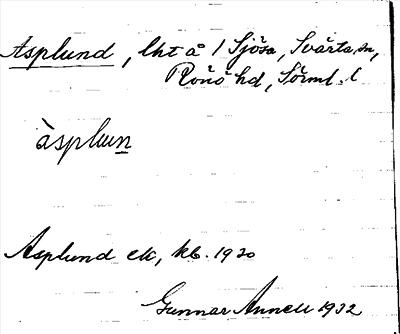 Asplund, lht å / Sjösa, Svärta sn,
Rönö hd, Sörml. l
àsplun
Asplund ek, kb. 1930
Gunnar Annell 1932